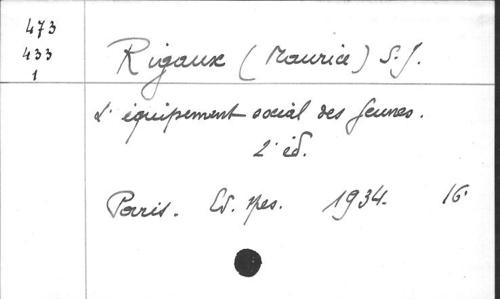 473
433
1
Rigaux (Maurice) S.J.
L'équipement social des Jeunes.
2e éd.
Paris. Ed. Spes. 1934. 16°